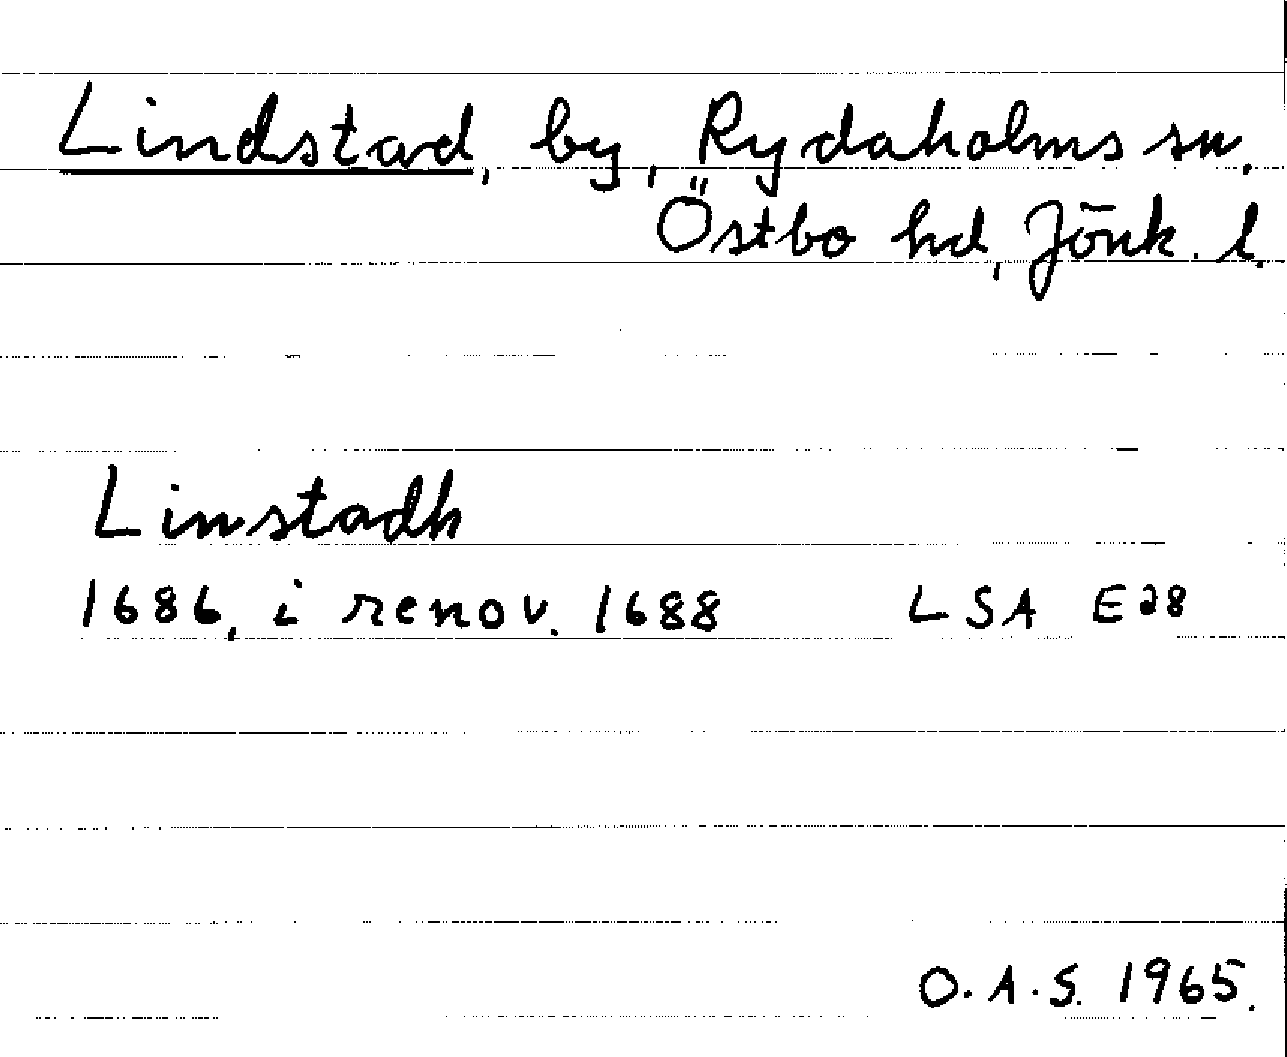 Lindstad, by, Rydaholms sn.
Östbo hd, Jönk. l.
Linstadh
1686, i renov. 1688 LSA E28
O.A.S. 1965.